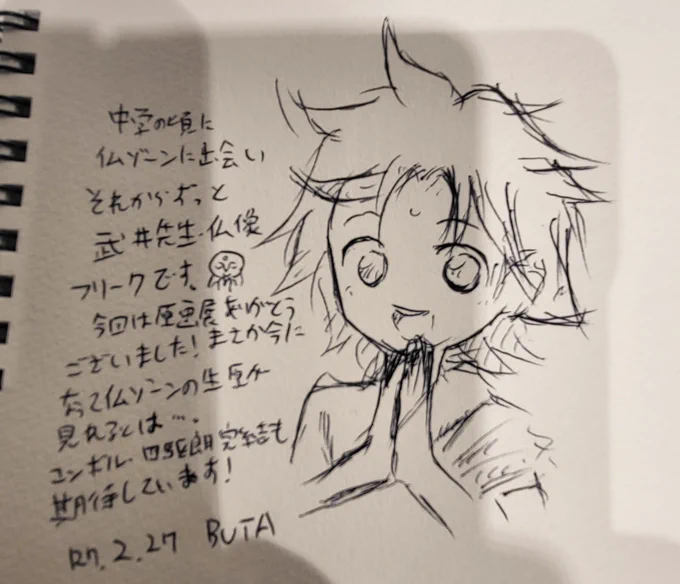 中学の頃に
仏ゾーンに出会い
それからずっと
武井先生・仏像
フリークです。
今回は原画展ありがとう
ございました！まさか今に
なって仏ゾーンの生原が
見れるとは…。
ユンボル 四駆郎完結も
期待しています！
R7.2.27 BUTA